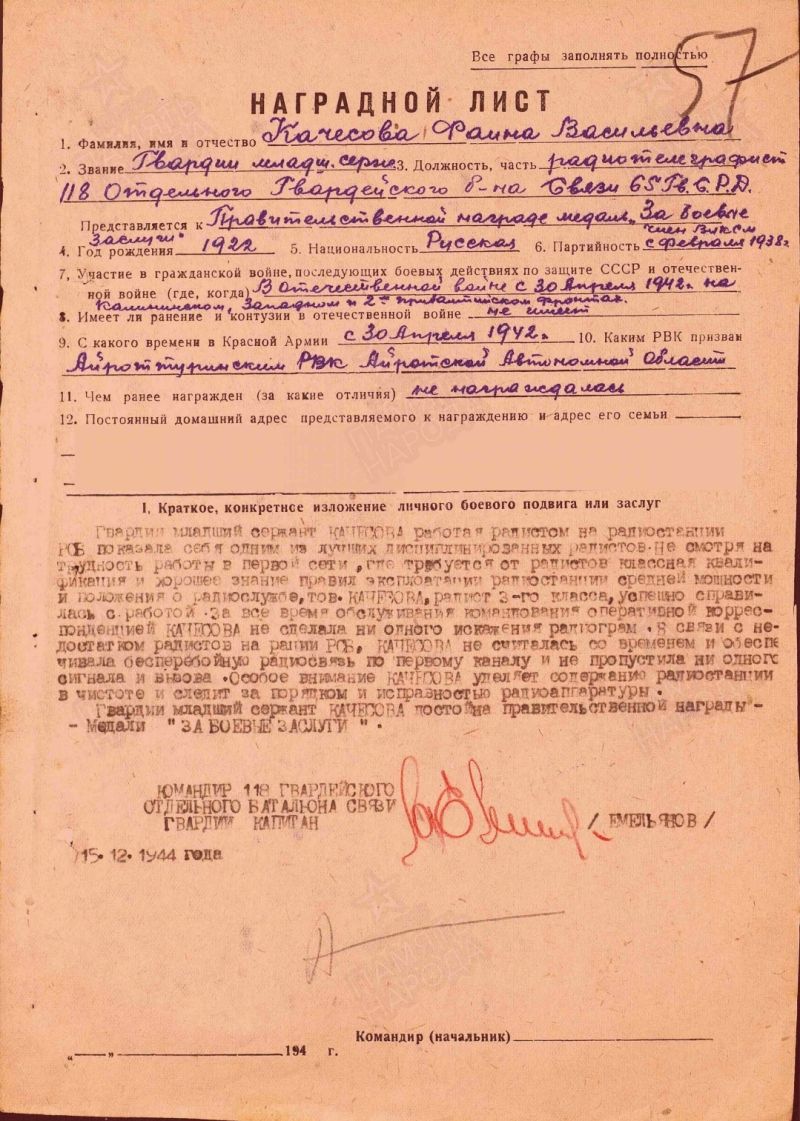 Все графы заполнять полностью
57
НАГРАДНОЙ ЛИСТ
1. Фамилия, имя и отчество Качесова Фаина Васильевна
2. Звание Гвардии младш. серж 3. Должность, часть радиотелеграфист
118 Отдельного Гвардейского б-на Связи 65 Гв. С.Р.Д.
Представляется к Правительственной награде медаль „За боевые
заслуги"
4. Год рождения 1922 5. Национальность Русская 6. Партийность член ВЛКСМ
с февраля 1938г
7. Участие в гражданской войне, последующих боевых действиях по защите СССР и отечествен-
ной войне (где, когда) В Отечественной войне с 30 Апреля 1942г. на
Калининском, Западном и 2м прибалтийском фронтах.
8. Имеет ли ранение и контузии в отечественной войне не имеет
9. С какого времени в Красной Армии с 30 Апреля 1942г. 10. Каким РВК призван
Айроттуринским РВК Айротской Автономной Области
11. Чем ранее награжден (за какие отличия) не награждалась
12. Постоянный домашний адрес представляемого к награждению и адрес его семьи
I. Краткое, конкретное изложение личного боевого подвига или заслуг
Гвардии младший сержант КАЧЕСОВА работая радистом на радиостанции
РСБ показала себя одним из лучших дисциплинированных радистов.Не смотря на
трудность работы в первой сети, где требуется от радистов классная квали-
фикация и хорошее знание правил эксплоатации радиостанции средней мощности
и положения о радиослужбе, тов. КАЧЕСОВА, радист 3-го класса, успешно справи-
лась с работой. За все время обслуживания командования оперативной коррес-
понденцией КАЧЕСОВА не сделала ни одного искажения радиограм. В связи с не-
достатком радистов на рации РСБ, КАЧЕСОВА не считалась со временем и обеспе
чивала бесперебойную радиосвязь по первому каналу и не пропустила ни одного
сигнала и вызова. Особое внимание КАЧЕСОВА уделяет содержание радиостанции
в чистоте и следит за порядком и исправностью радиоаппаратуры.
Гвардии младший сержант КАЧЕСОВА достойна правительственной награды -
- Медали " ЗА БОЕВЫЕ ЗАСЛУГИ ".
КОМАНДИР 118 ГВАРДЕЙСКОГО
ОТДЕЛЬНОГО БАТАЛЬОНА СВЯЗИ
ГВАРДИИ КАПИТАН / ЕМЕЛЬЯНОВ /
15.12.1944 года
ПАМЯТЬ НАРОДА
Командир (начальник)
„ — " 194 г.